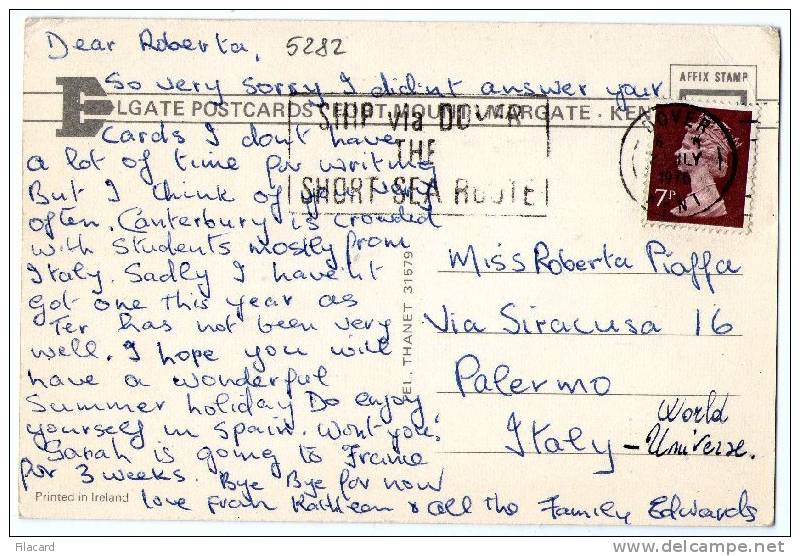 Dear Roberta, 5282
So very sorry I didint answer your
ELGATE POSTCARDS FORT MOUNT, MARGATE · KENT
cards I dont have
a lot of time for writing
But I think of you very
often. Canterbury is crowded
with students mostly from
Italy. Sadly I have'nt
got one this year as
Ter has not been very
well. I hope you will
have a wonderful
Summer holiday Do enjoy
yourself in Spain. Wont you.
Sarah is going to France
for 3 weeks. Bye Bye for now
love from Kathleen & all the Family Edwards
Printed in Ireland
TEL. THANET 31579
AFFIX STAMP
SHIP via DOVER
THE
SHORT SEA ROUTE
DOVER
JLY
1976
KENT
7P
Miss Roberta Piaffa
Via Siracusa 16
Palermo
Italy - World
Universe.